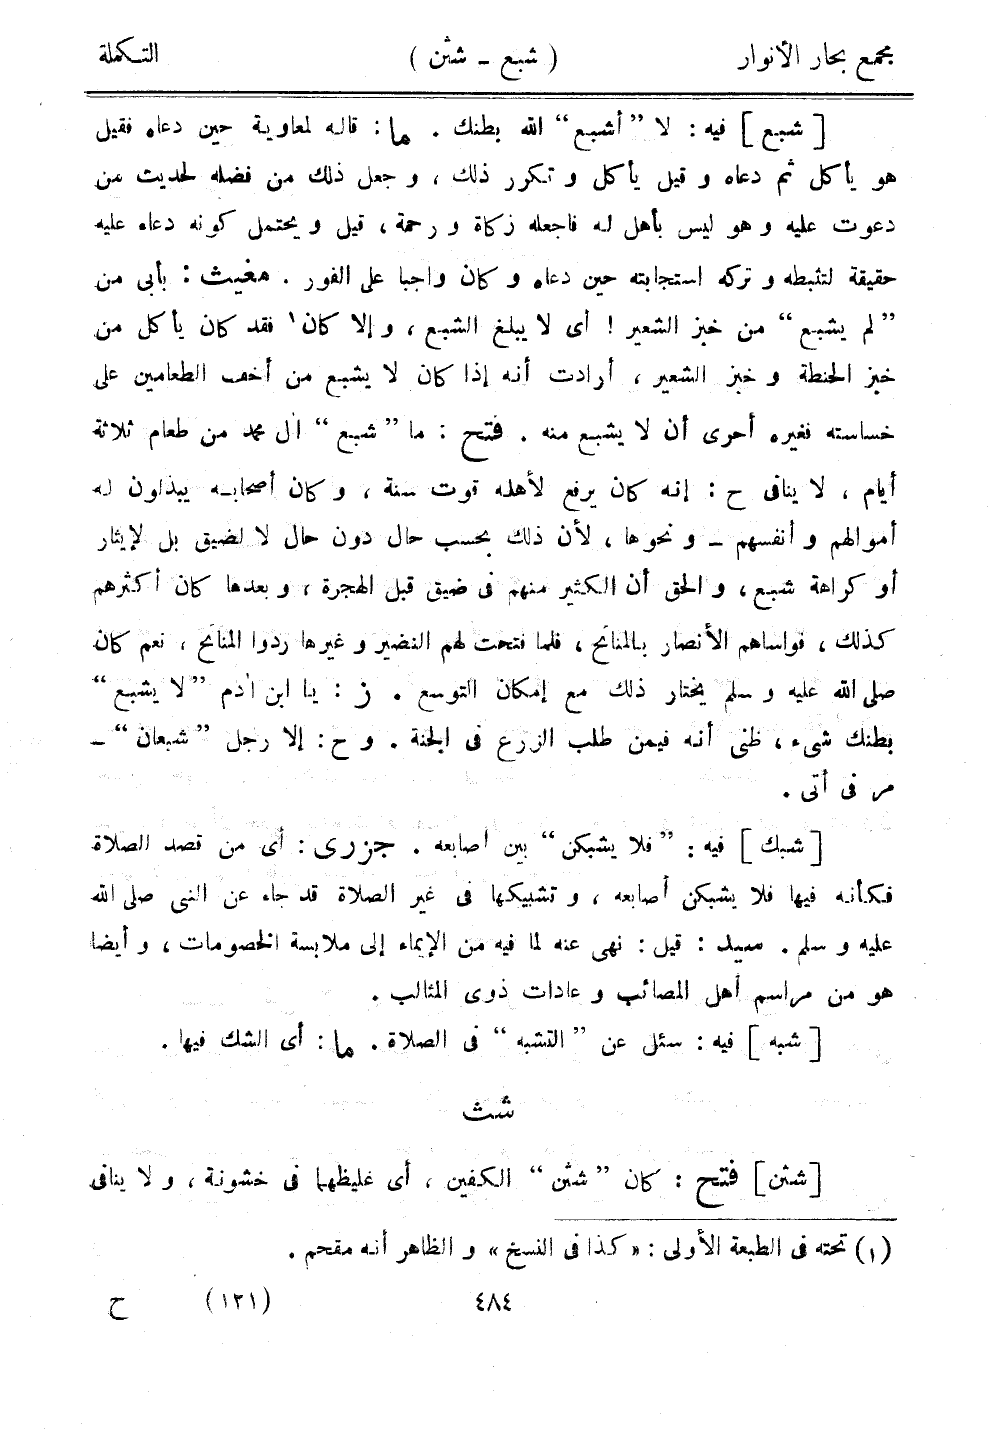 مجمع بحار الأنوار ( شبع ـ شثن ) التكملة
[ شبع ] فيه: لا ”أشبع“ الله بطنك . ما: قاله لمعاوية حين دعاه فقيل
هو يأكل ثم دعاه و قيل يأكل و تكرر ذلك ، و جعل ذلك من فضله لحديث من
دعوت عليه و هو ليس بأهل له فاجعله زكاة و رحمة ، قيل و يحتمل كونه دعاه عليه
حقيقة لتثبطه و تركه استجابته حين دعاه و كان واجبا على الفور . مغيث : بأبى من
”لم يشبع“ من خبز الشعير ! أى لا يبلغ الشبع ، و إلا كان١ فقد كان يأكل من
خبز الحنطة و خبز الشعير ، أرادت أنه إذا كان لا يشبع من أخف الطعامين على
خساسته فغيره أحرى أن لا يشبع منه . فتح : ما ”شبع“ اٰل محمد من طعام ثلاثة
أيام ، لا ينافى ح : إنه كان يرفع لأهله قوت سنة ، و كان أصحابه يبذلون له
أموالهم و أنفسهم ـ و نحوها ، لأن ذلك بحسب حال دون حال لا لضيق بل لإيثار
أو كراهة شبع ، و الحق أن الكثير منهم فى ضيق قبل الهجرة ، و بعدها كان أكثرهم
كذلك ، فواساهم الأنصار بالمنائح ، فلما فتحت لهم النضير و غيرها ردوا المنائح ، نعم كان
صلى الله عليه و سلم يختار ذلك مع إمكان التوسع . ز : يا ابن اٰدم ”لا يشبع“
بطنك شىء ، ظنى أنه فيمن طلب الزرع فى الجنة . و ح : إلا رجل ”شبعان“ ـ
مر فى أتى .
[ شبك ] فيه: ”فلا يشبكن“ بين أصابعه . جزرى : أى من قصد الصلاة
فكأنه فيها فلا يشبكن أصابعه ، و تشبيكها فى غير الصلاة قد جاء عن النبى صلى الله
عليه و سلم . سيد : قيل : نهى عنه لما فيه من الإيماء إلى ملابسة الخصومات ، و أيضا
هو من مراسم أهل المصائب و عادات ذوى المثالب .
[ شبه ] فيه : سئل عن ”التشبه“ فى الصلاة . ما : أى الشك فيها .
شث
[شثن] فتح : كان ”شثن“ الكفين ، أى غليظهما فى خشونة ، و لا ينافى
(١) تحته فى الطبعة الأولى : «كذا فى النسخ» و الظاهر أنه مقحم .
٤٨٤ (١٢١) ح